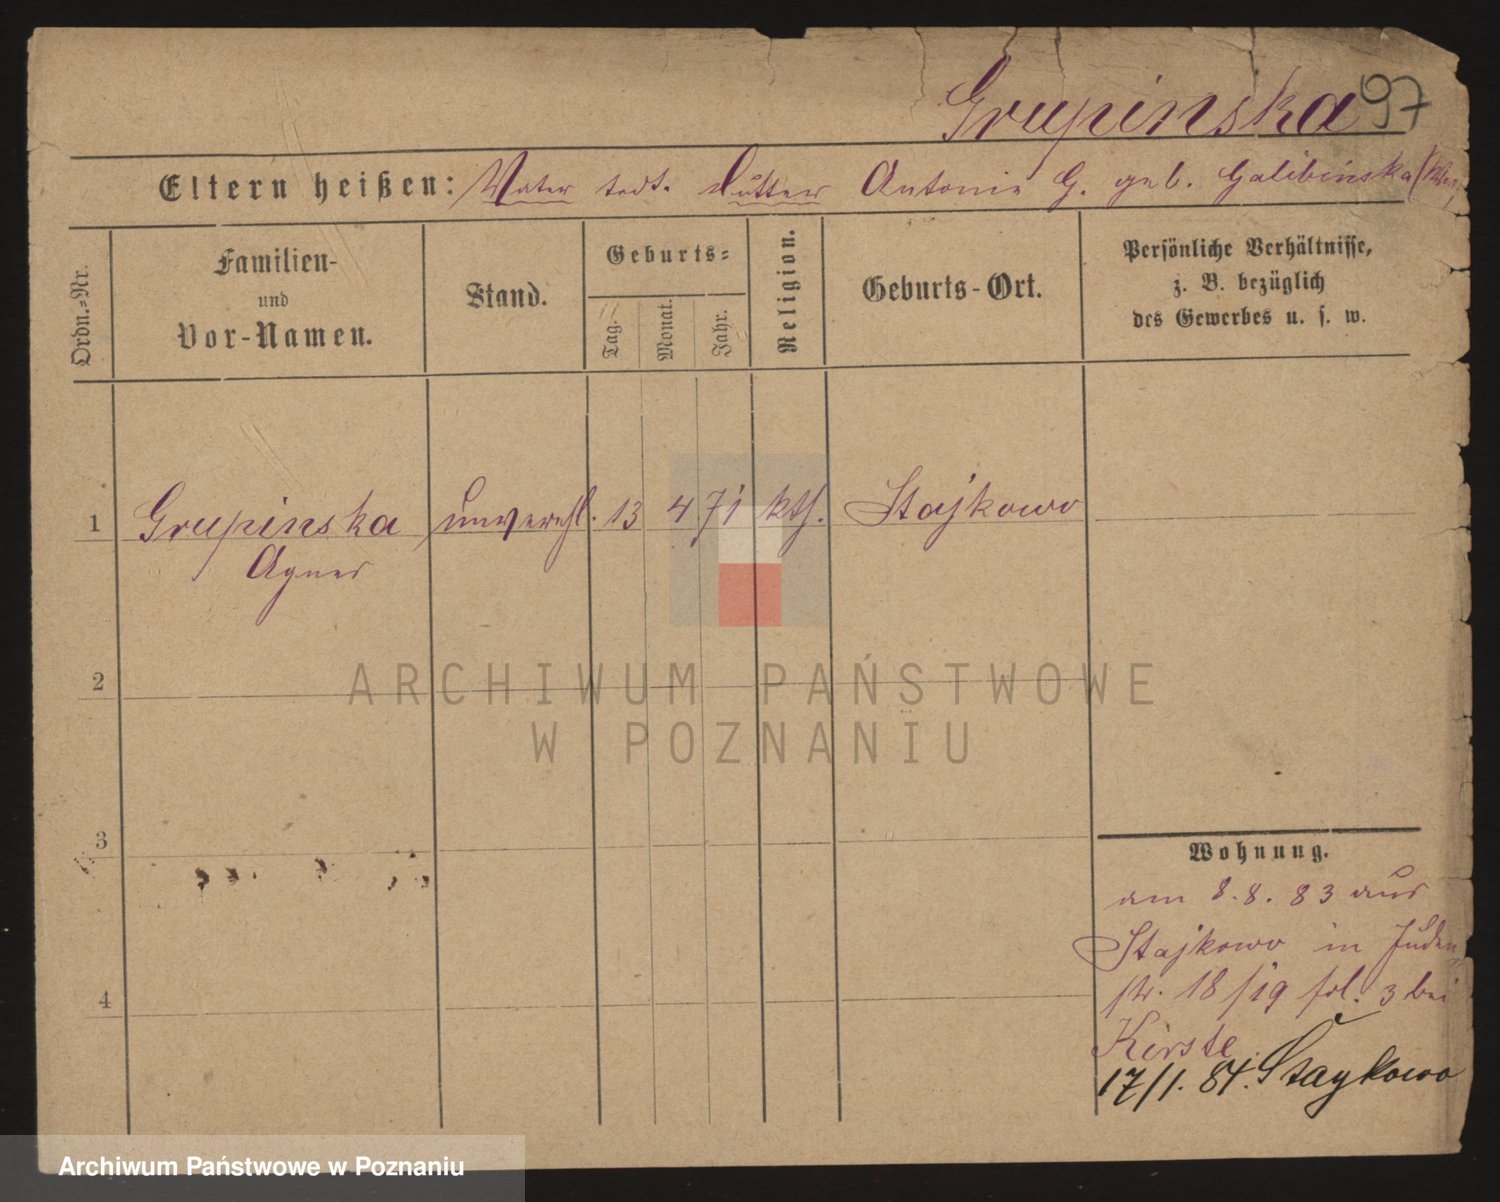 Grupinska 97
Eltern heißen: Vater todt. Mutter Antonie G. geb. Galibinska
Ordn.-Nr.
Familien-
und
Vor-Namen.
Stand.
Geburts=
Tag.
Monat.
Jahr.
Religion.
Geburts-Ort.
Persönliche Verhältnisse,
z. B. bezüglich
des Gewerbes u. s. w.
1 Grupinska unverehl. 13 4 71 kth. Stajkowo
Agnes
2
3
4
Wohnung.
am 8.8.83 aus
Stajkowo in Juden
str. 18/19 fol. 3 bei
Kirste.
17/1.84. Staykowo
ARCHIWUM PAŃSTWOWE
W POZNANIU
Archiwum Państwowe w Poznaniu